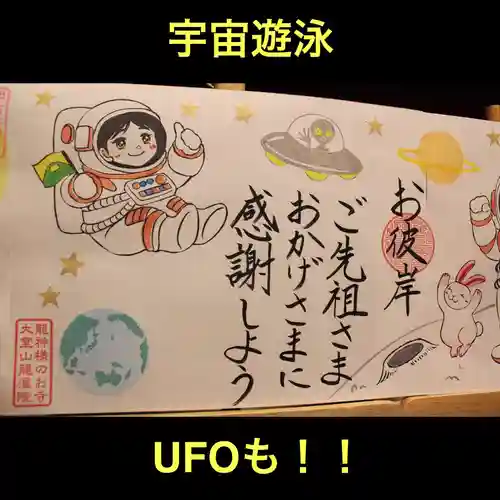 宇宙遊泳
お彼岸
ご先祖さま
おかげさまに
感謝しよう
龍神様のお寺
大室山龍溫院
UFOも！！